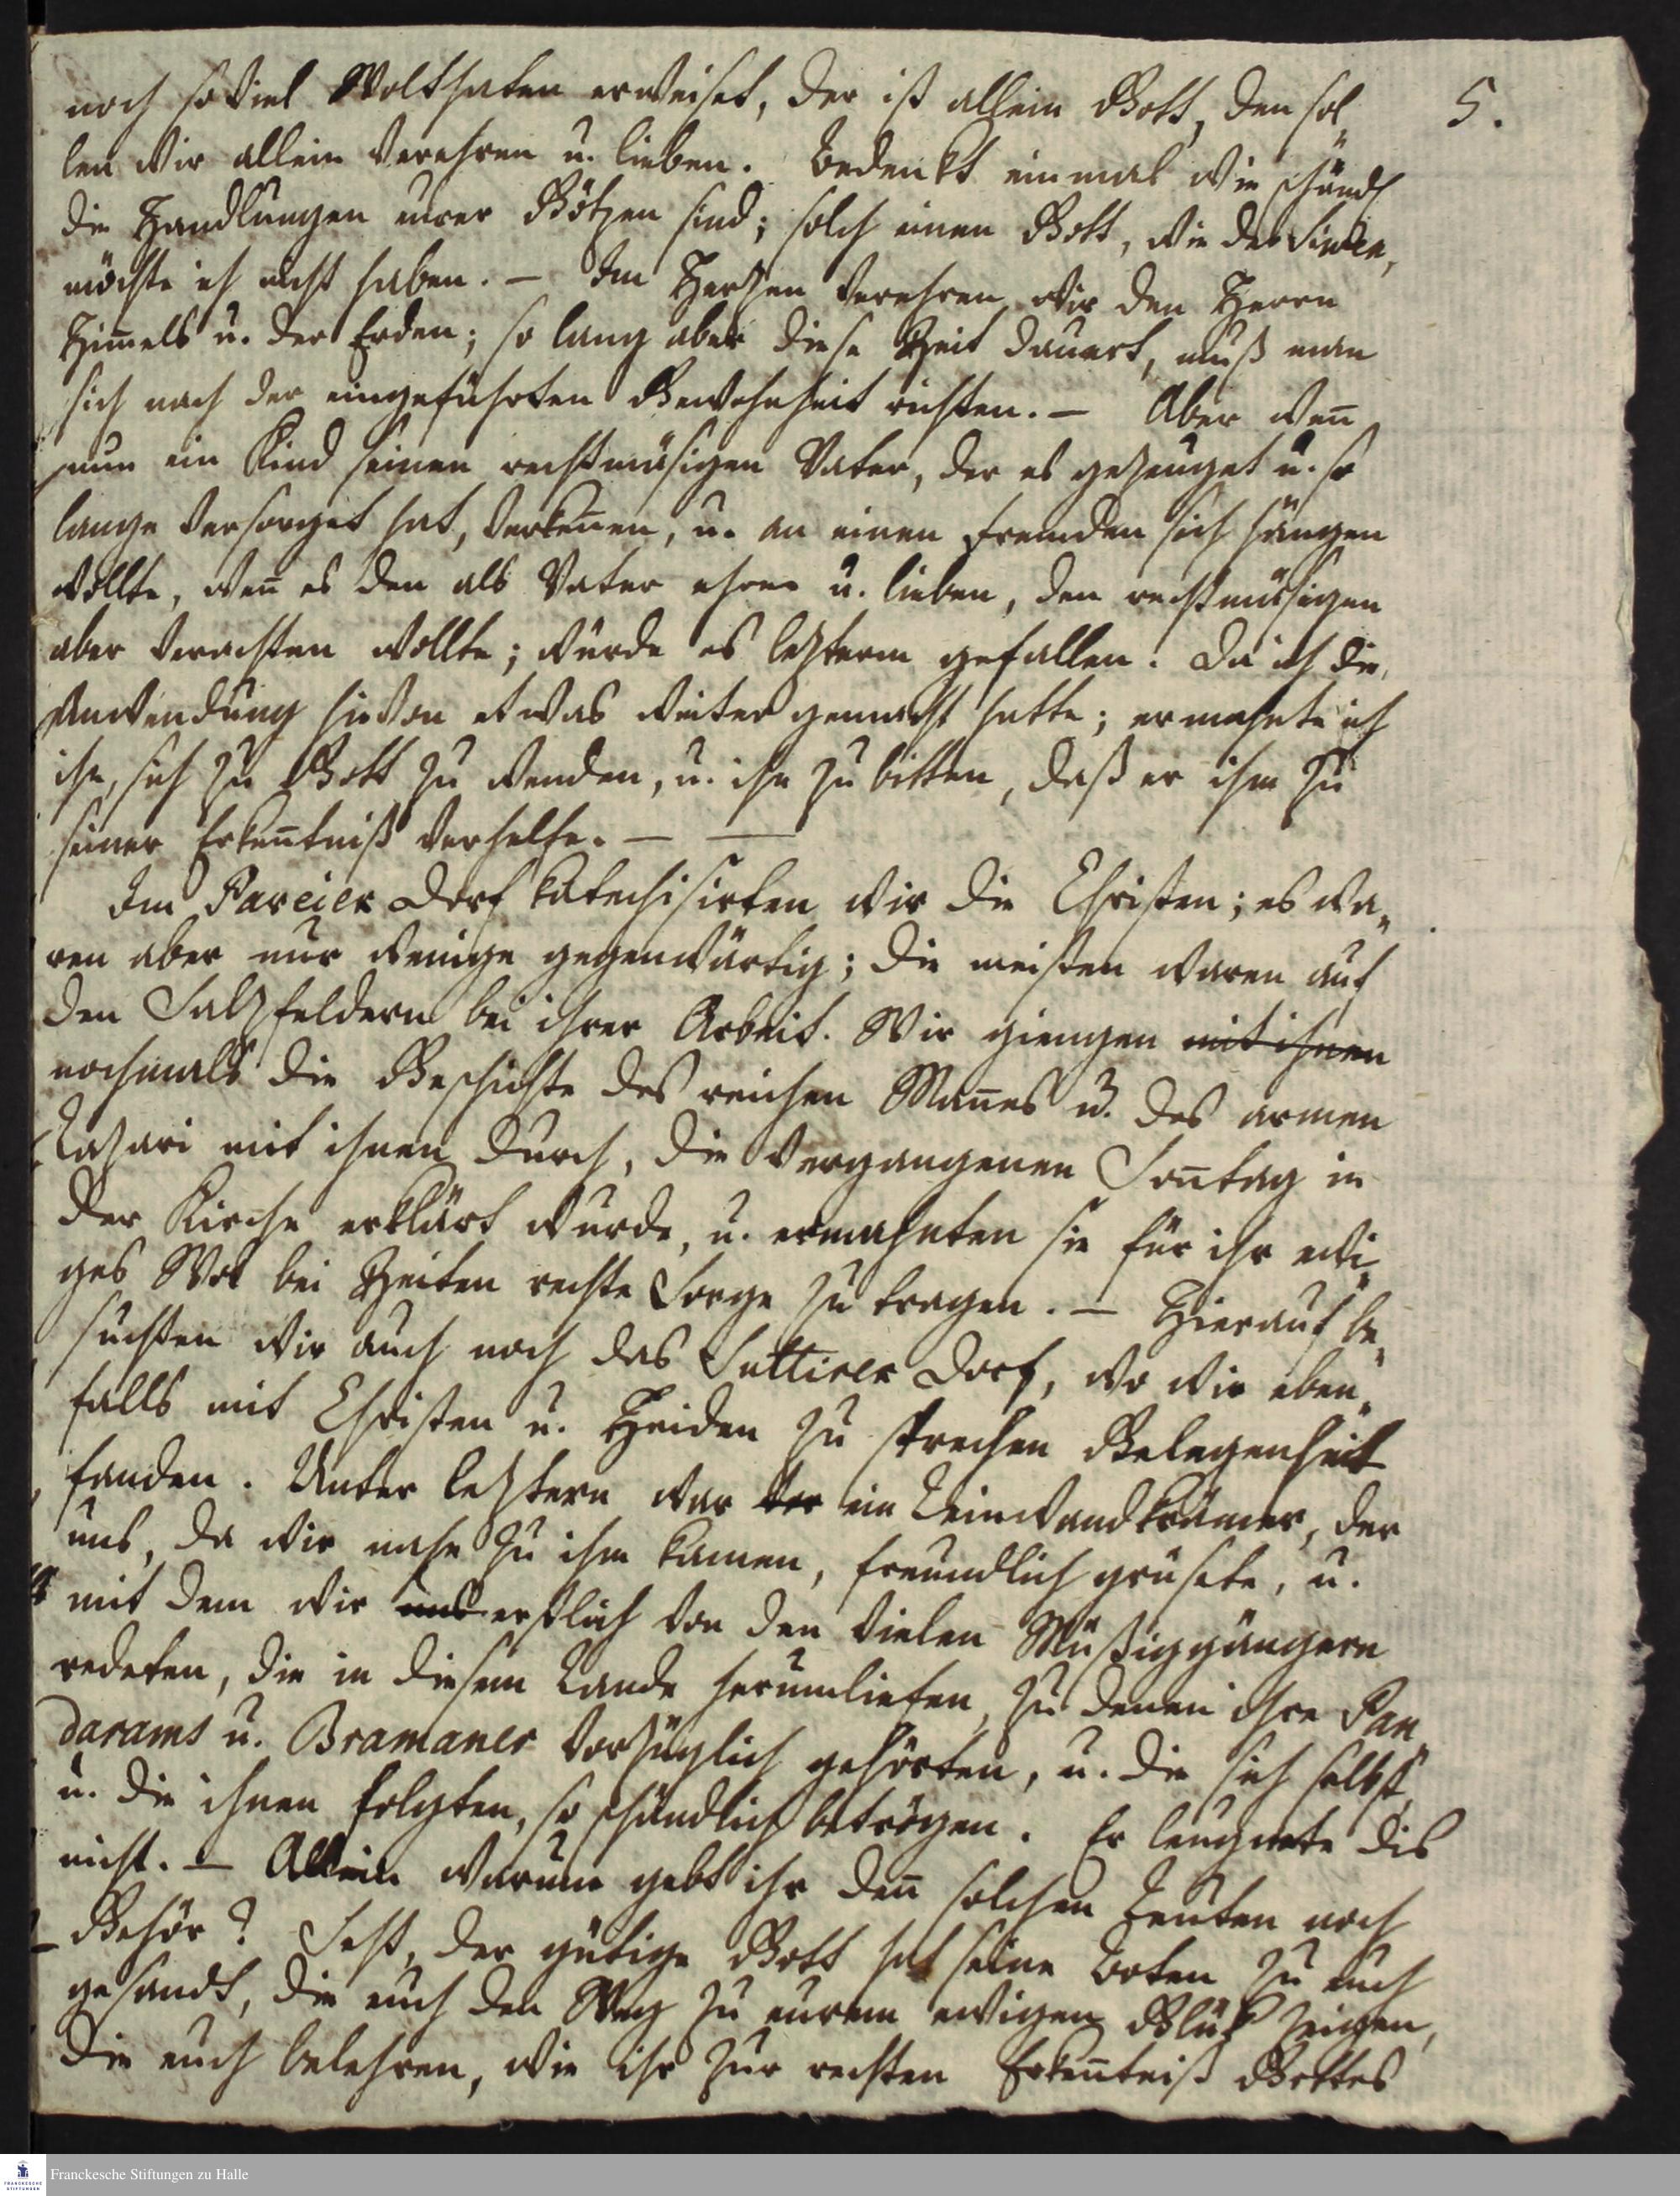 5.
noch soviel Wolthaten erweiset, der ist allein Gott, den sol¬
len wir allein verehren u. lieben. Bedenkt einmal wie schändl.
die Handlungen eurer Götzen sind; solch einen Gott, wie der Siwen,
möchte ich nicht haben. – Im Herzen verehren wir den Herrn
Him̄els u. der Erden; so lang aber diese Zeit dauert, muß man
sich nach der eingeführten Gewohnheit richten. – Aber wen̄
nun ein Kind seinen rechtmäsigen Vater, der es gezeuget u. so
lange versorget hat, verken̄en, u. an einen fremden sich hängen
wollte, wen̄ es den als Vater ehren u. lieben, den rechtmäsigen
aber verachten wollte; würde es lezterm gefallen. Da ich die
Anwendung hievon etwas weiter gemacht hatte; ermahnte ich
ihn, sich zu Gott zu wenden, u. ihn zu bitten, daß er ihm zu
seiner Erken̄tniß verhelfe. – –
Im Pareier Dorf katechisirten wir die Christen; es wa¬
ren aber nur wenige gegenwärtig; die meisten waren auf
den Salzfeldern bei ihrer Arbeit. Wir giengen mit ihnen
nochmals die Geschichte des reichen Man̄es u. des armen
Lazari mit ihnen durch, die vergangenen Son̄tag in
der Kirche erklärt wurde, u. ermahnten sie für ihr ewi¬
ges Wol bei Zeiten rechte Sorge zu tragen. – Hierauf be¬
suchten wir auch noch das Suttirer Dorf, wo wir eben¬
falls mit Christen u. Heiden zu sprechen Gelegenheit
fanden. Unter leztern war der ein Leinwandkrämer, der
uns, da wir nahe zu ihm kamen, freundlich grüsete, u.
mit dem wir uns erstlich von den vielen Müßiggängern
redeten, die in diesem Lande herumliefen, zu denen ihre Pan¬
darams u. Bramaner vorzüglich gehörten, u. die sich selbst,
u. die ihnen folgten, so schändlich betrögen. Er leugnete dis
nicht. – Allein warum gebt ihr den̄ solchen Leuten noch
Gehör? Seht, der gütige Gott hat seine Boten zu euch
gesandt, die euch den Weg zu eurem ewigen Glük zeigen,
die euch belehren, wie ihr zur rechten Erken̄tniß Gottes
Franckesche Stiftungen zu Halle